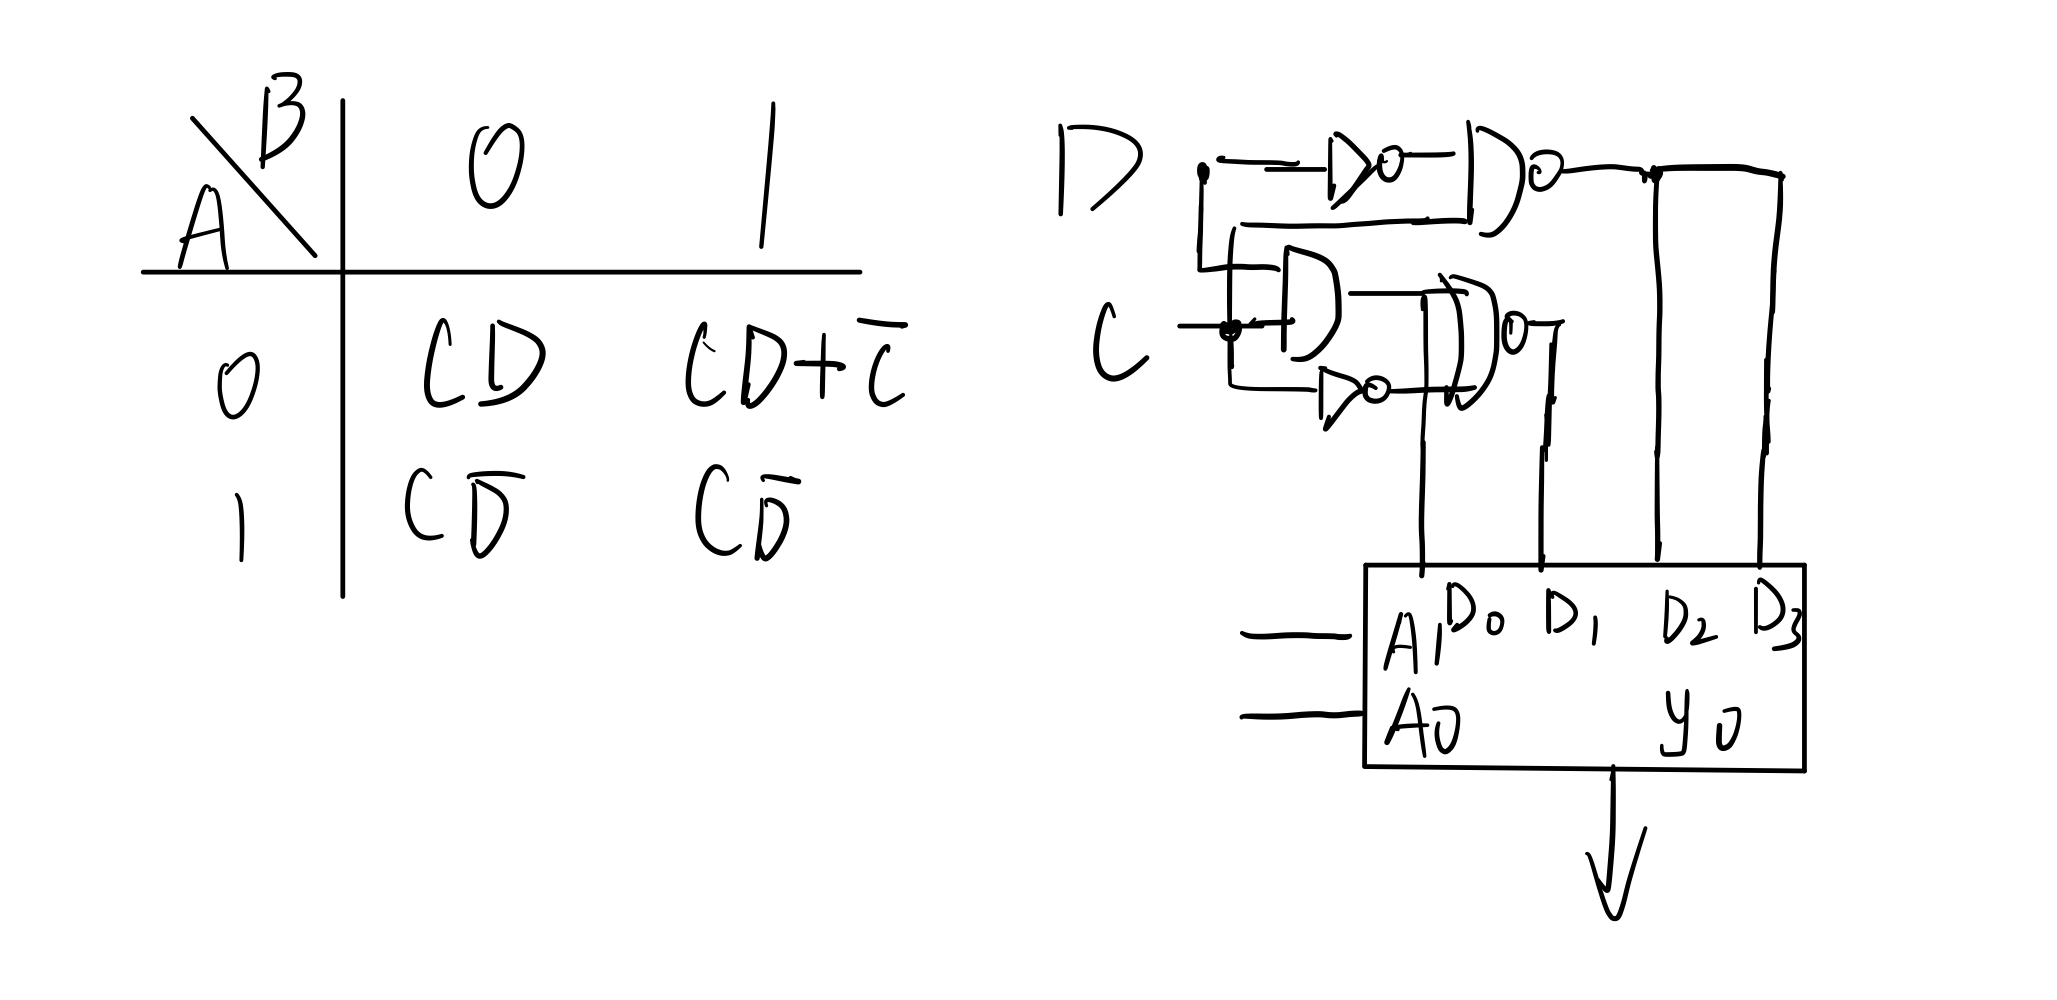 B
A
0 1
0 CD CD+C̅
1 CD̅ CD̅
D
C
D0 D1 D2 D3
A1
A0 y0